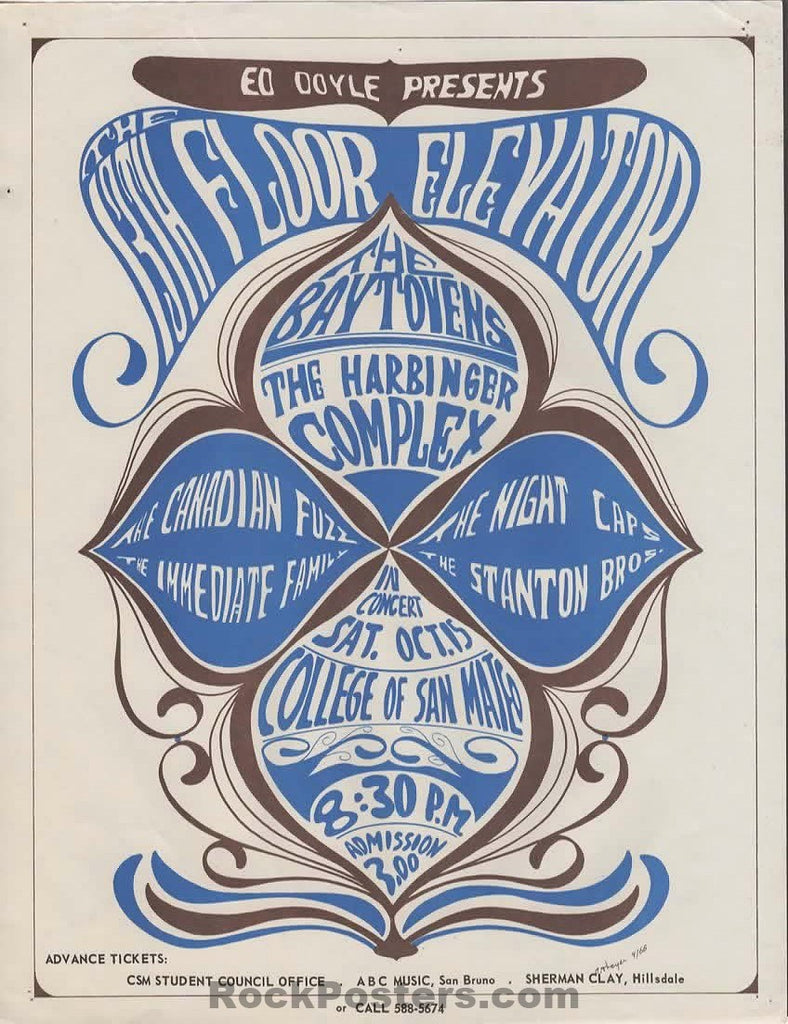 ED DOYLE PRESENTS
THE
13TH FLOOR ELEVATOR
THE
BAYTOVENS
THE HARBINGER
COMPLEX
THE CANADIAN FUZZ
THE IMMEDIATE FAMILY
THE NIGHT CAPS
THE STANTON BROS.
IN
CONCERT
SAT. OCT. 15
COLLEGE OF SAN MATEO
8:30 P.M
ADMISSION
3.00
ADVANCE TICKETS:
CSM STUDENT COUNCIL OFFICE . ABC MUSIC, San Bruno . SHERMAN CLAY, Hillsdale
or CALL 588-5674
RockPosters.com